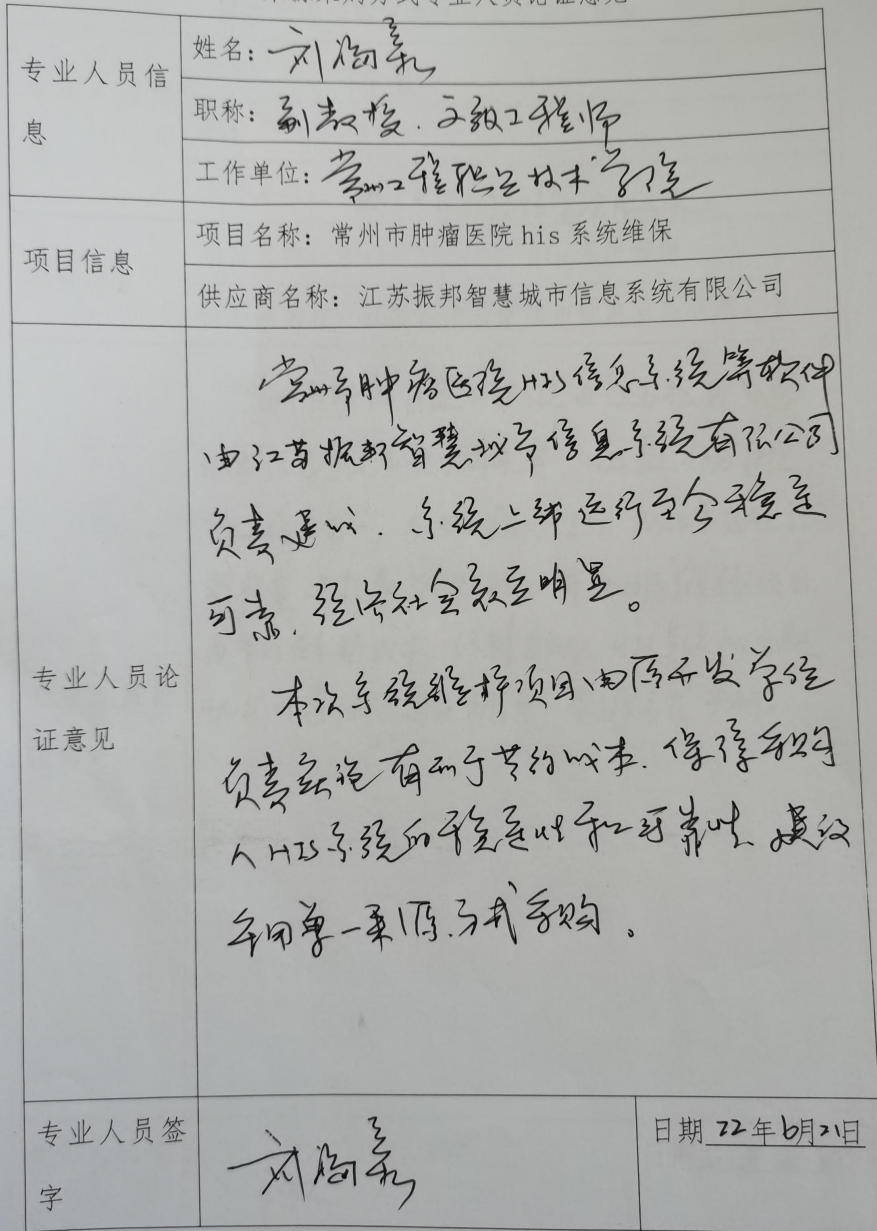 专业人员论证意见
专业人员信
息
姓名：刘
职称：副教授．高级工程师
工作单位：常州工程职业技术学院
项目信息
项目名称：常州市肿瘤医院 his 系统维保
供应商名称：江苏振邦智慧城市信息系统有限公司
专业人员论
证意见
常州市肿瘤医院HIS信息系统等软件
由江苏振邦智慧城市信息系统有限公司
负责建成．系统上线运行至今稳定
可靠，经济社会效益明显。
本次系统维护项目由原开发单位
负责实施有利于节约成本．保障采购
人HIS系统的稳定性和可靠性 建议
采用单一来源方式采购。
专业人员签
字
刘
日期 22年6月21日